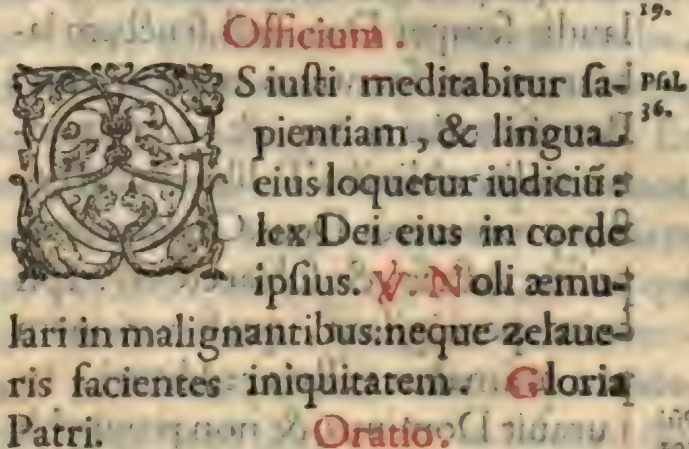 19.
Officium.
OS iusti meditabitur sa-
Psal.
36.
pientiam, & lingua
eius loquetur iudiciũ:
lex Dei eius in corde
ipsius. V. Noli æmu-
lari in malignantibus: neque zelaue-
ris facientes iniquitatem. Gloria
Patri. Oratio.